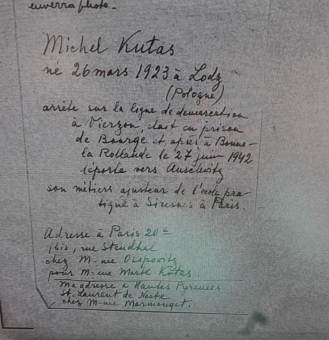 enverra photo -
Michel Kutas
né 26 mars 1923 à Lodz
(Pologne)
arrêté sur la ligne de démarcation
à Vierzon, était en prison
de Bourge et après à Baune-
la Rollande le 27 juin 1942
déporté vers Auschwitz
son métiers ajusteur de l'école pra-
tique à à Paris
Adresse à Paris 20e
16 bis, rue Stendhal
chez M-me
pour M-me Kutas
Ma adresse à Hautes Pyrenées
St. Laurent de Neste
chez M-me Marmouget.